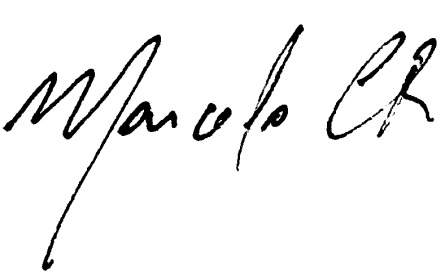 Marcelo CR